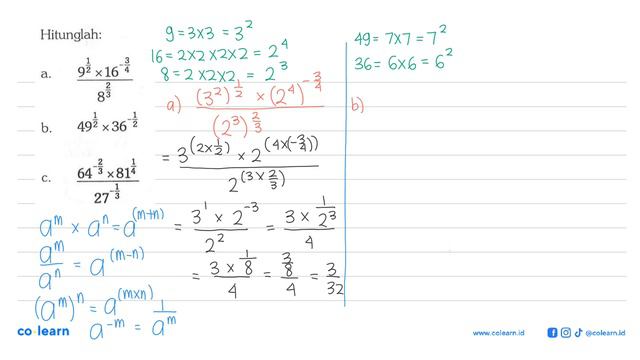 Hitunglah:
a. \frac{9^{\frac{1}{2}} \times 16^{-\frac{3}{4}}}{8^{\frac{2}{3}}}
b. 49^{\frac{1}{2}} \times 36^{-\frac{1}{2}}
c. \frac{64^{-\frac{2}{3}} \times 81^{\frac{1}{4}}}{27^{-\frac{1}{3}}}
a^m × a^n = a^{(m+n)}
\frac{a^m}{a^n} = a^{(m-n)}
(a^m)^n = a^{(m×n)}
a^{-m} = \frac{1}{a^m}
9 = 3×3 = 3^2
16 = 2×2×2×2 = 2^4
8 = 2×2×2 = 2^3
a) \frac{(3^2)^{\frac{1}{2}} × (2^4)^{-\frac{3}{4}}}{(2^3)^{\frac{2}{3}}}
= \frac{3^{(2×\frac{1}{2})} × 2^{(4×(-\frac{3}{4}))}}{2^{(3×\frac{2}{3})}}
= \frac{3^1 × 2^{-3}}{2^2} = \frac{3 × \frac{1}{2^3}}{4}
= \frac{3 × \frac{1}{8}}{4} = \frac{\frac{3}{8}}{4} = \frac{3}{32}
49 = 7×7 = 7^2
36 = 6×6 = 6^2
b)
co·learn
www.colearn.id
@colearn.id